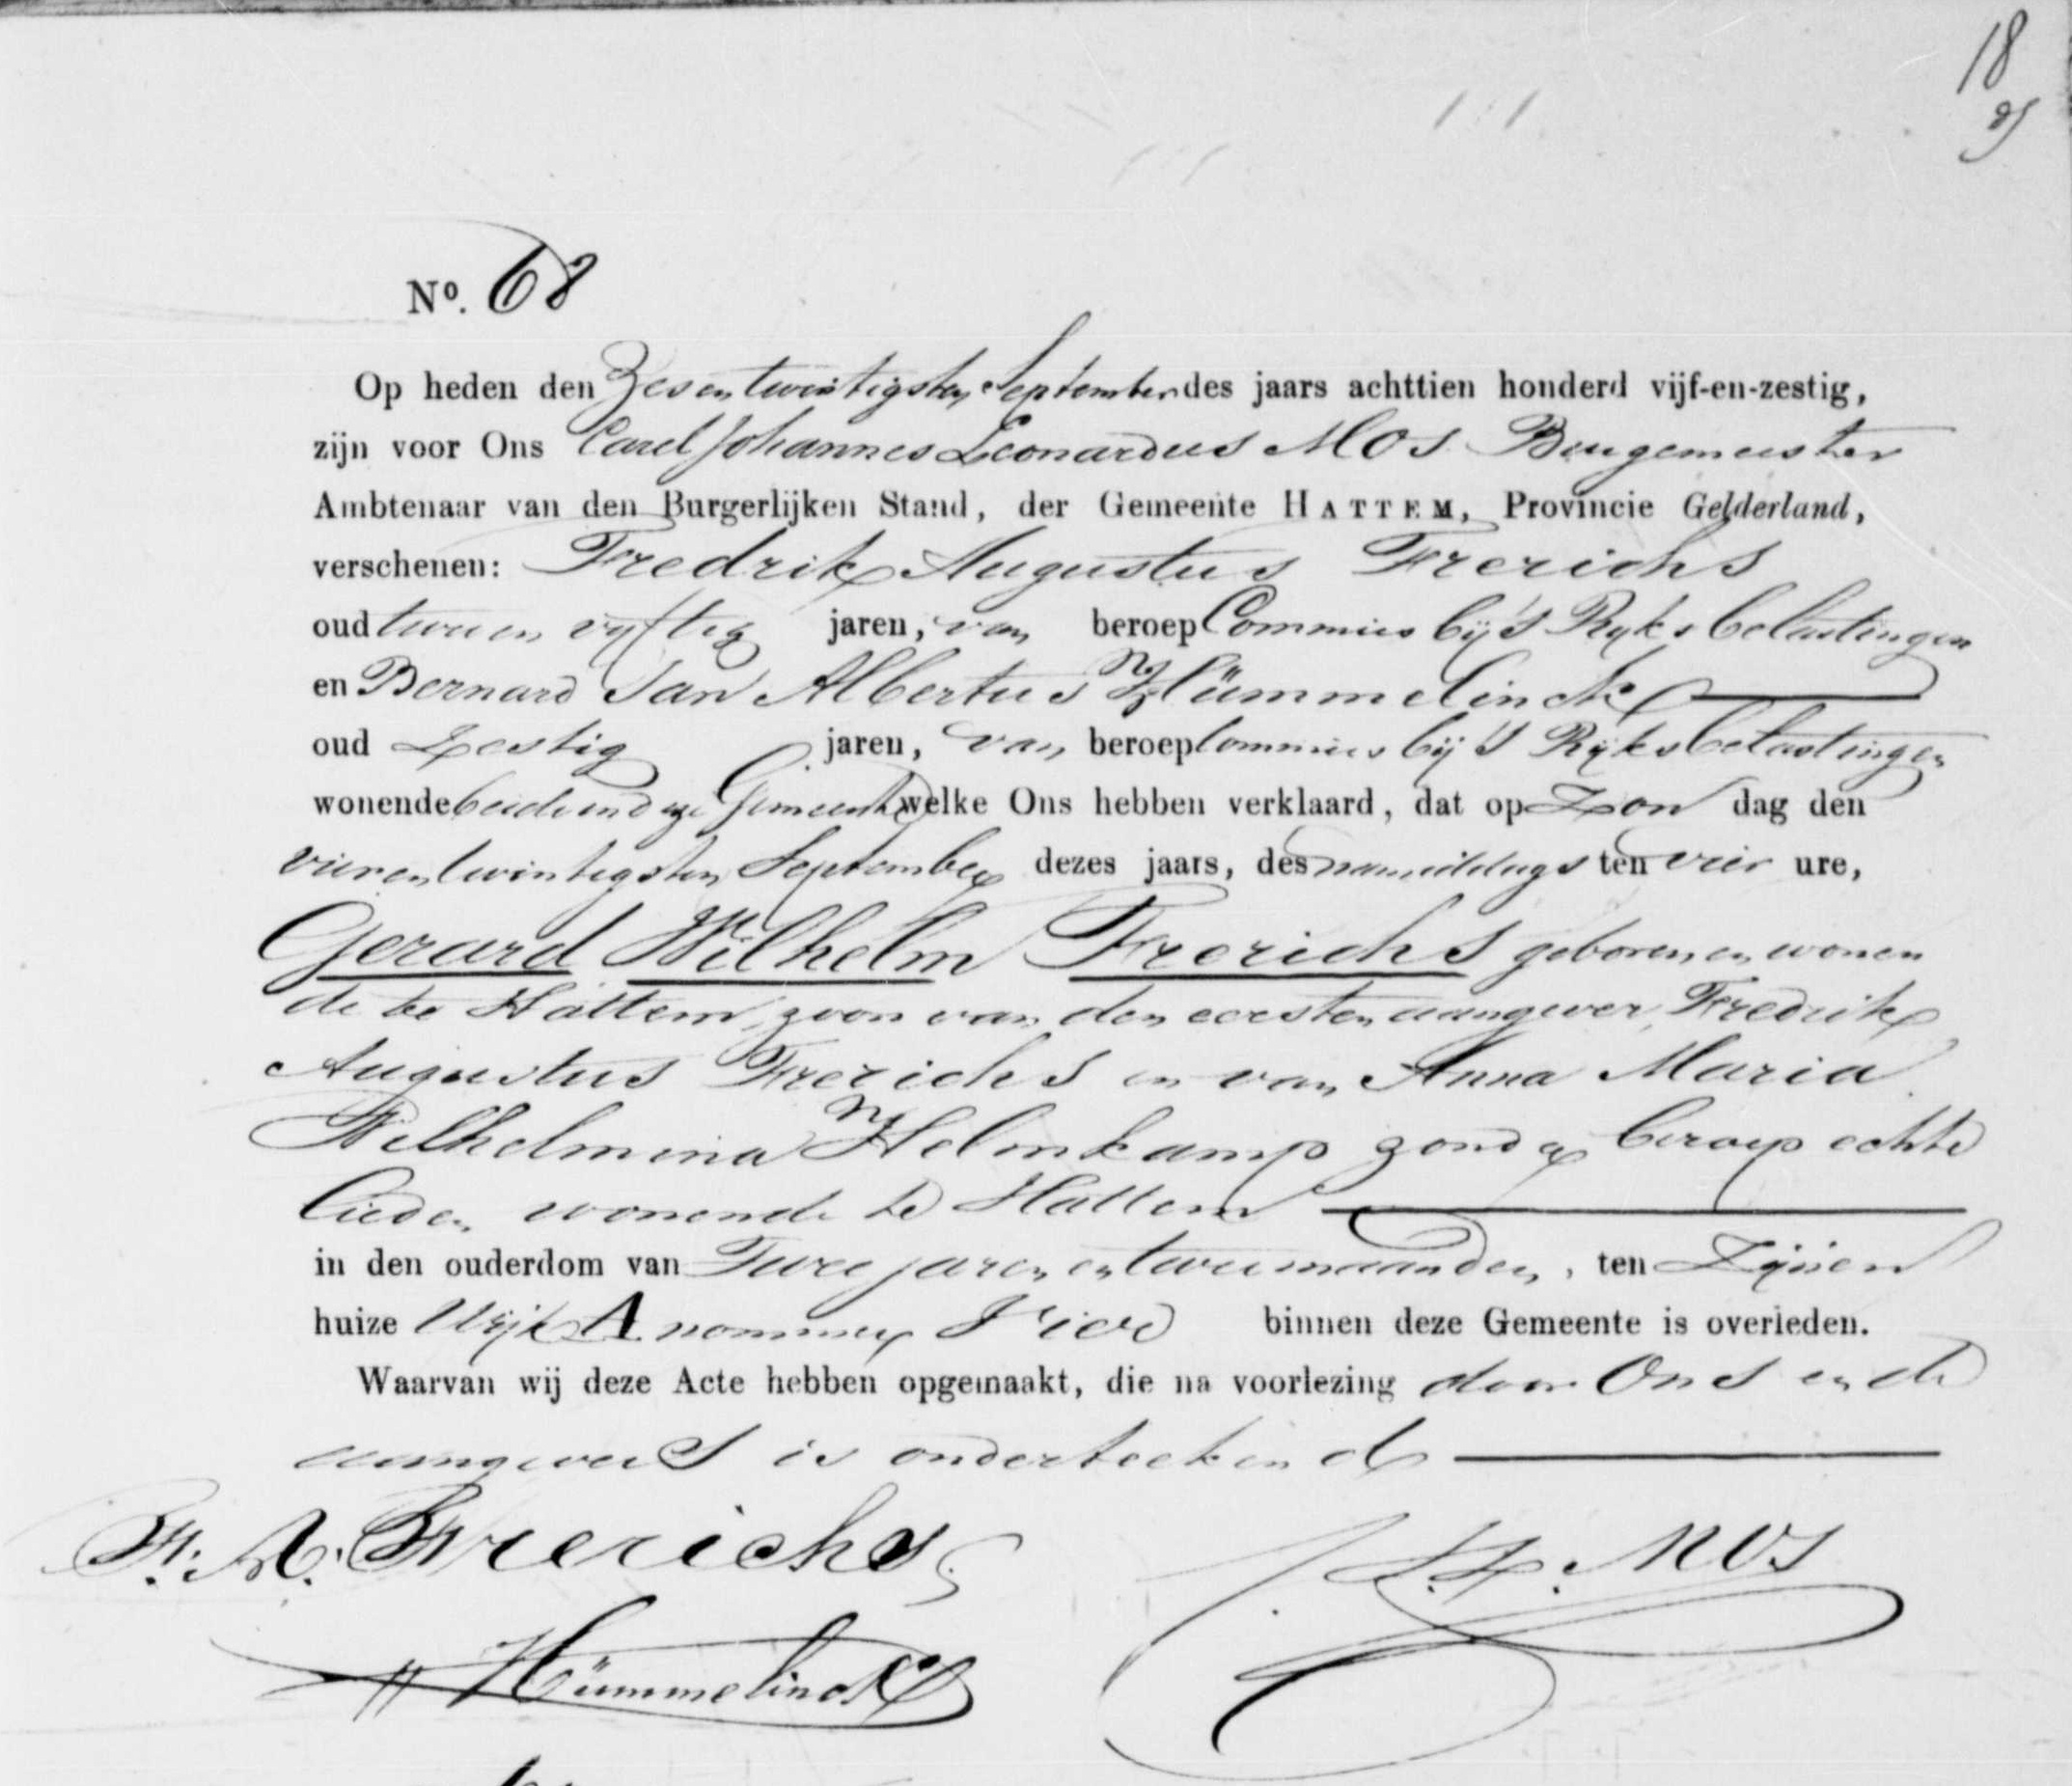 18
No. 68
Op heden den Zesentwintigsten September des jaars achttien honderd vijf-en-zestig,
zijn voor Ons Carel Johannes Leonardus Mos Burgemeester
Ambtenaar van den Burgerlijken Stand, der Gemeente HATTEM, Provincie Gelderland,
verschenen: Fredrik Augustus Frerichs
oud twee en vyftig jaren, van beroep Commies bij 's Ryks belastingen
en Bernard Jan Albertus Hümmelinck
oud Zestig jaren, van beroep Commies bij 's Ryks belastingen
wonende beide in deze Gemeente welke Ons hebben verklaard, dat op Zon dag den
vierentwintigsten September dezes jaars, des namiddags ten vier ure,
Gerard Wilhelm Frerichs geboren en wonen
de te Hattem, zoon van den eersten aangever Fredrik
Augustus Frerichs en van Anna Maria
Wilhelmina Helmkamp zonder beroep echte
lieden wonende te Hattem
in den ouderdom van Twee jaren en twee maanden, ten Zijnen
huize Wijk A nommer Vier binnen deze Gemeente is overleden.
Waarvan wij deze Acte hebben opgemaakt, die na voorlezing door Ons en de
aangevers is onderteekend
Fr. A. Frerichs
Mos
Hümmelinck